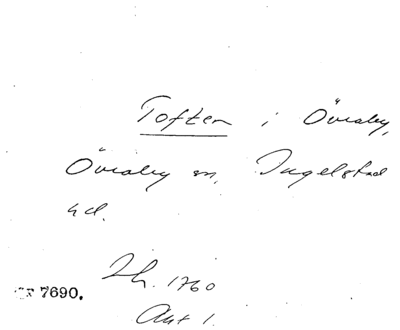 Toften i Övraby,
Övraby sn, Ingelstad
hd.
Lh. 1760
7690.
Akt 1.